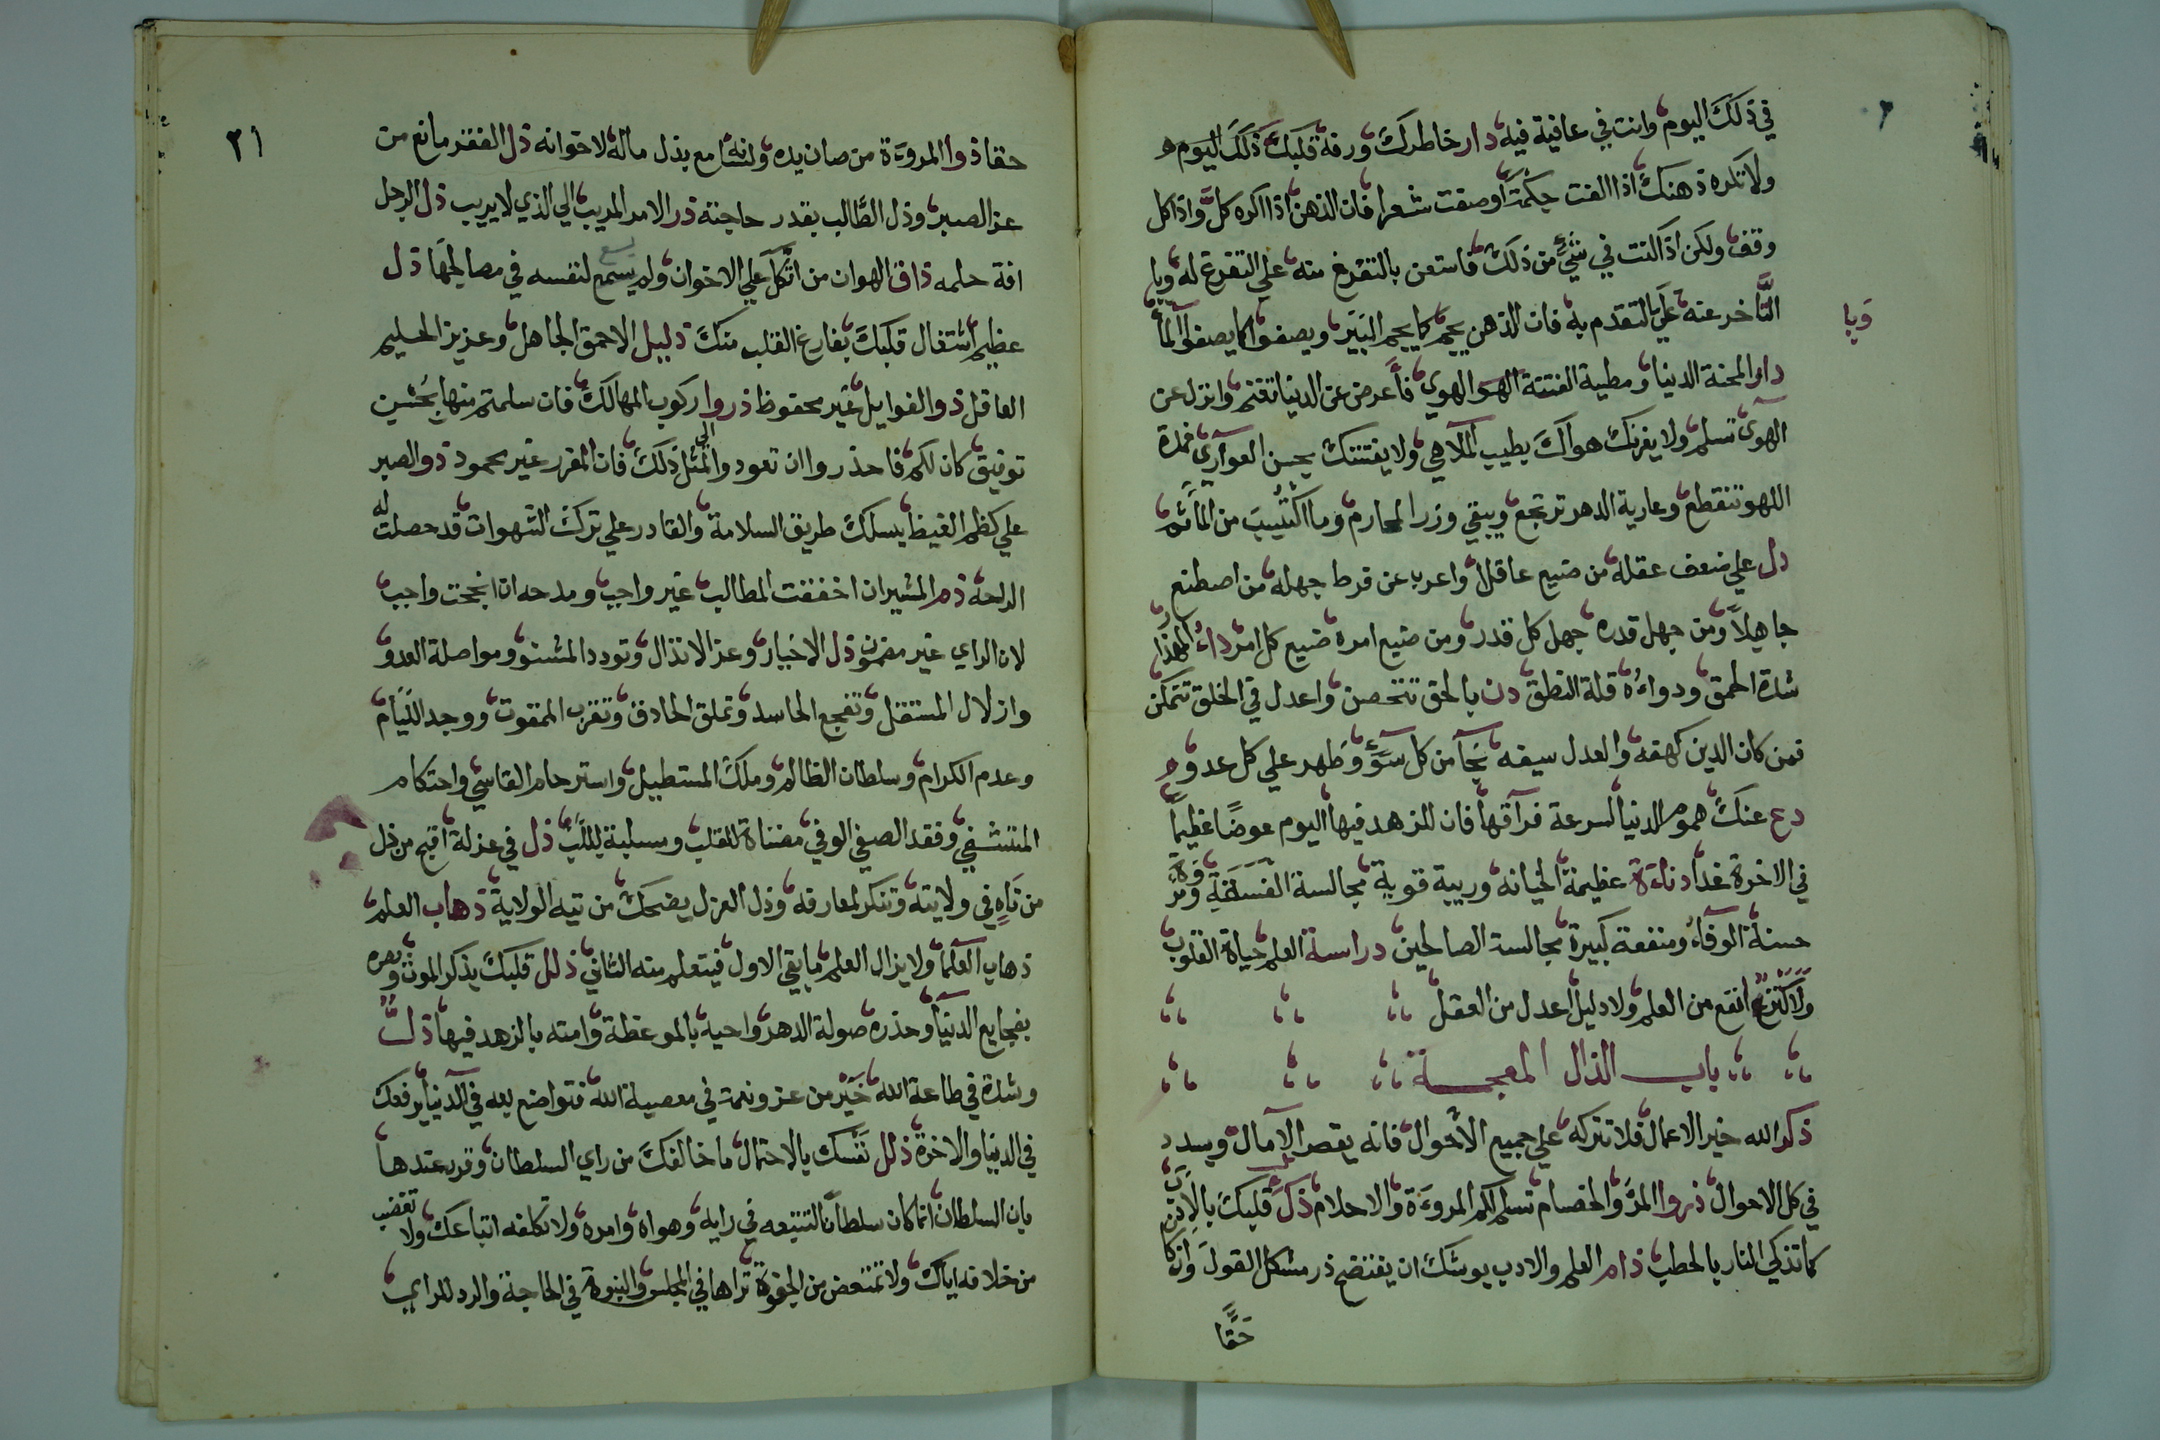 في ذلك اليوم وانت في عافية فيه دار خاطرك ورفة قلبك ذلك اليوم
ولا تكره ذهنك اذا الفت حكمة اوصفت شعرا فان الذهن اذا اكره كل واذا كل
وقف ولكن اذا كنت في شيء من ذلك فاستعن بالتفرغ منه علي التفرغ له وبا
التأخر عنه علي التقدم به فان الذهن يجم كما يجم البير ويصفوا كما يصفوا الما
وبا
دار المحنة الدنيا ومطية الفتنة الهوي فأعرض عن الدنيا تغنم وانزل عن
الهوي تسلم ولا يغرنك هواك بطيب الملاهي ولا يفتنك بحسن العواري فمدة
اللهو تنقطع وعارية الدهر ترتجع ويبقي وزر المحارم وما اكتسب من المأثم
دل علي ضعف عقله من ضيع عاقلا واعرب عن فرط جهله من اصطنع
جاهلا ومن جهل قدره جهل كل قدر ومن ضيع امره ضيع كل امر داء المهذار
شدة الحمق ودواءه قلة النطق دن بالحق تتحصن واعدل في الخلق تتمكن
فمن كان الدين كهفه والعدل سيفه نجا من كل سوء وظهر علي كل عدو
دع عنك هموم الدنيا لسرعة فراقها فان للزهد فيها اليوم عوضا عظيما
في الاخرة غدا دناءة عظيمة الخيانه وريبة قوية مجالسة الفسقة ومروة
حسنة الوفاء ومنفعة كبيرة مجالسة الصالحين دراسة العلم حياة القلوب
ولا كنز انفع من العلم ولا دليل اعدل من العقل
باب الذال المعجمة
ذكر الله خير الاعمال فلا تتركه علي جميع الأحوال فانه يقصر الآمال ويسدد
في كل الاحوال ذروا المرا والخصام تسلم لكم المروءة والاحلام ذك قلبك بالادب
كما تذكي النار بالحطب ذام العلم والادب يوشك ان يفتضح ذر مشكل القول وان كان
حقا
٢١
حقا ذوا المروءة من صان يده ولسانه مع بذل ماله لاخوانه ذل الفقر مانع من
عز الصبر وذل الطالب بقدر حاجته ذر الامر المريب الي الذي لا يريب ذل الرجل
افة حلمه ذاق الهوان من اتكل علي الاخوان ولم يسع لنفسه في مصالحها ذل
عظيم اشتغال قلبك بفارغ القلب منك ذليل الاحمق الجاهل وعزيز الحليم
العاقل ذو الغوايل غير محفوظ ذروا ركوب المهالك فان سلمتم منها بحسن
توفيق كان لكم فاحذروا ان تعودوا الي مثل ذلك فان المغرر غير محمود ذو الصبر
علي كظم الغيظ يسلك طريق السلامة والقادر علي ترك الشهوات قد حصلت له
الراحة ذم المشير ان اخفقت المطالب غير واجب ومدحه ان انجحت واجب
لان الراي غير مضمون ذل الاخيار وعز الانذال وتودد المشنو ومواصلة العدو
وازلال المستقل وتفجع الحاسد وتملق الحاذق وتقرب الممقوت ووجد اللئام
وعدم الكرام وسلطان الظالم وملك المستطيل واسترحام القاسي واحتكام
المتشفي وفقد الصفي الوفي مضناة للقلب ومسلبة للب ذل في عزلة اقبح من ذل
من تاه في ولايته وتنكر لمعارفه وذل العزل يضحك من تيه الولاية ذهاب العلم
ذهاب العلما ولا يزال العلم ما بقي الاول فيتعلم منه الثاني ذلل قلبك بذكر الموت وبصره
بفجايع الدنيا وحذره صولة الدهر واحيه بالموعظة وامته بالزهد فيها ذل
وشدة في طاعة الله خير من عز ونعمة في معصية الله فتواضع لله في الدنيا يرفعك
في الدنيا والاخرة ذلل نفسك بالاحتمال ما خالفك من راي السلطان وقرر عندها
بان السلطان انما كان سلطانا لتتبعه في رايه وهواه وامره ولا تكلفه اتباعك ولا تغضب
من خلافه اياك ولا تمتعض من الجفوة تراها في المجلس والنبوة في الحاجة والرد للراي